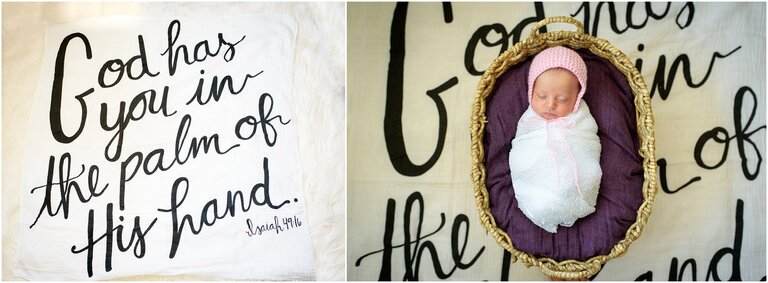 God has
you in
the palm of
His hand.
Isaiah 49:16
God has
in
of
the
hand